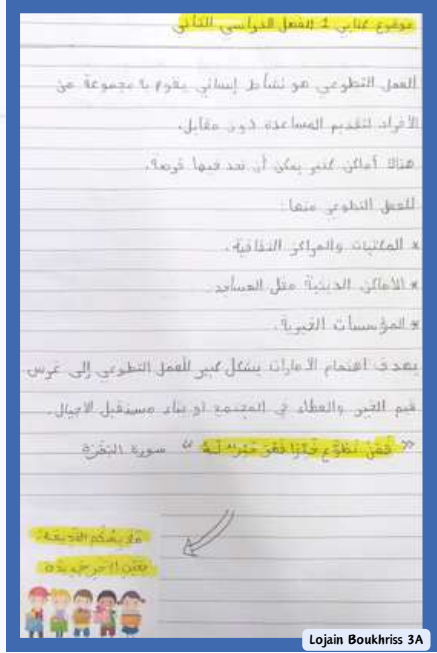 موضوع كتابي 2 الفصل الدراسي الثاني
العمل التطوعي هو نشاط إنساني يقوم به مجموعة من
الأفراد لتقديم المساعدة دون مقابل.
هناك أماكن كثير يمكن أن نجد فيها فرصة.
للعمل التطوعي منها:
* المكتبات والمراكز الثقافية.
* الأماكن الدينية مثل المساجد.
* المؤسسات الخيرية.
يهدف اهتمام الامارات بشكل كبير للعمل التطوعي إلى غرس
قيم الخير والعطاء في المجتمع او بناء مستقبل الاجيال.
« فمن تطوع خيرا فهو خير له » سورة البقرة
Lojain Boukhriss 3A